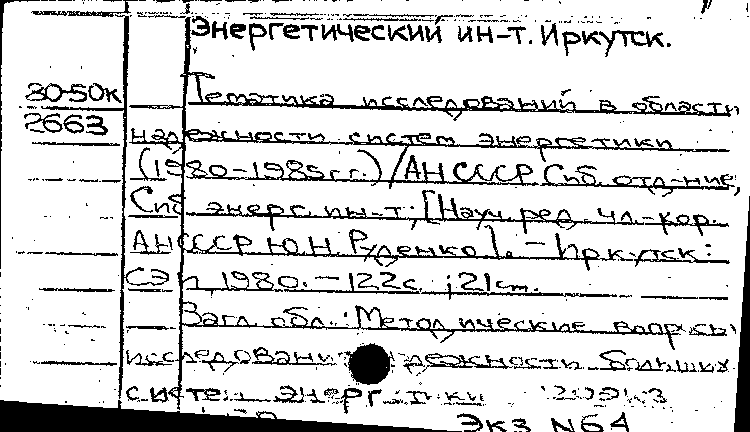 Энергетический ин-т. Иркутск.
80-50к Тематика исследований в области
2663 надежности систем энергетики
(1980-1985гг.)/АН СССР Сиб. отд-ние,
Сиб. энерг. ин-т; [Науч. ред. чл.-кор.
АН СССР Ю.Н. Руденко]. - Иркутск:
СЭИ, 1980. - 122с.; 21см.
Загл. обл.: Методические вопросы
исследования надежности больших
систем энергетики
Экз N64